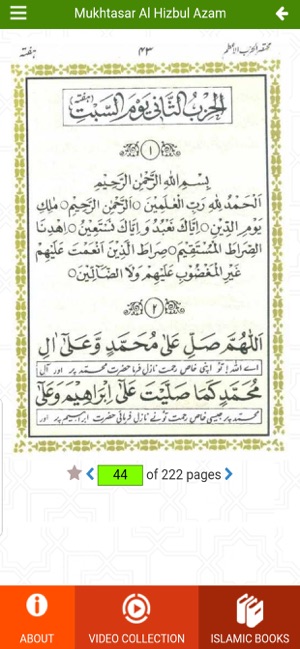 Mukhtasar Al Hizbul Azam
مختصر الحزب الاعظم ۴۳ ہفتہ
اَلْحِزْبُ الثَّانِيْ يَوْمَ السَّبْتِ (ہفتہ)
۱
بِسْمِ اللهِ الرَّحْمٰنِ الرَّحِيْمِ
اَلْحَمْدُ لِلّٰهِ رَبِّ الْعٰلَمِيْنَ ○ الرَّحْمٰنِ الرَّحِيْمِ ○ مٰلِكِ
يَوْمِ الدِّيْنِ ○ اِيَّاكَ نَعْبُدُ وَ اِيَّاكَ نَسْتَعِيْنُ ○ اِهْدِنَا
الصِّرَاطَ الْمُسْتَقِيْمَ ○ صِرَاطَ الَّذِيْنَ اَنْعَمْتَ عَلَيْهِمْ
غَيْرِ الْمَغْضُوْبِ عَلَيْهِمْ وَلَا الضَّآلِّيْنَ ○
۲
اَللّٰهُمَّ صَلِّ عَلٰى مُحَمَّدٍ وَّعَلٰى اٰلِ
اے اللہ! تو اپنی خاص رحمت نازل فرما حضرت محمد پر اور آل
مُحَمَّدٍ كَمَا صَلَّيْتَ عَلٰى اِبْرَاهِيْمَ وَعَلٰى
محمد پر جیسی خاص رحمت تو نے نازل فرمائی حضرت ابراہیم پر اور
44 of 222 pages
ABOUT VIDEO COLLECTION ISLAMIC BOOKS